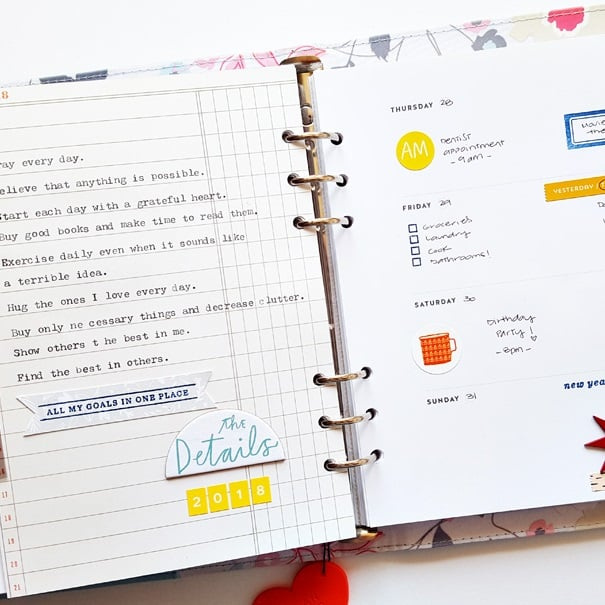 8
ray every day.
elieve that anything is possible.
Start each day with a grateful heart.
Buy good books and make time to read them.
Exercise daily even when it sounds like
a terrible idea.
Hug the ones I love every day.
Buy only ne cessary things and decrease clutter.
Show others t he best in me.
Find the best in others.
ALL MY GOALS IN ONE PLACE
the
Details
2018
17
18
21
THURSDAY 28
AM
DENTIST
appointment
- 9am -
Movie
the
FRIDAY 29
Groceries
Laundry
Cook
Bathrooms!
YESTERDAY
SATURDAY 30
Birthday
Party!
- 8pm -
SUNDAY 31
new yea